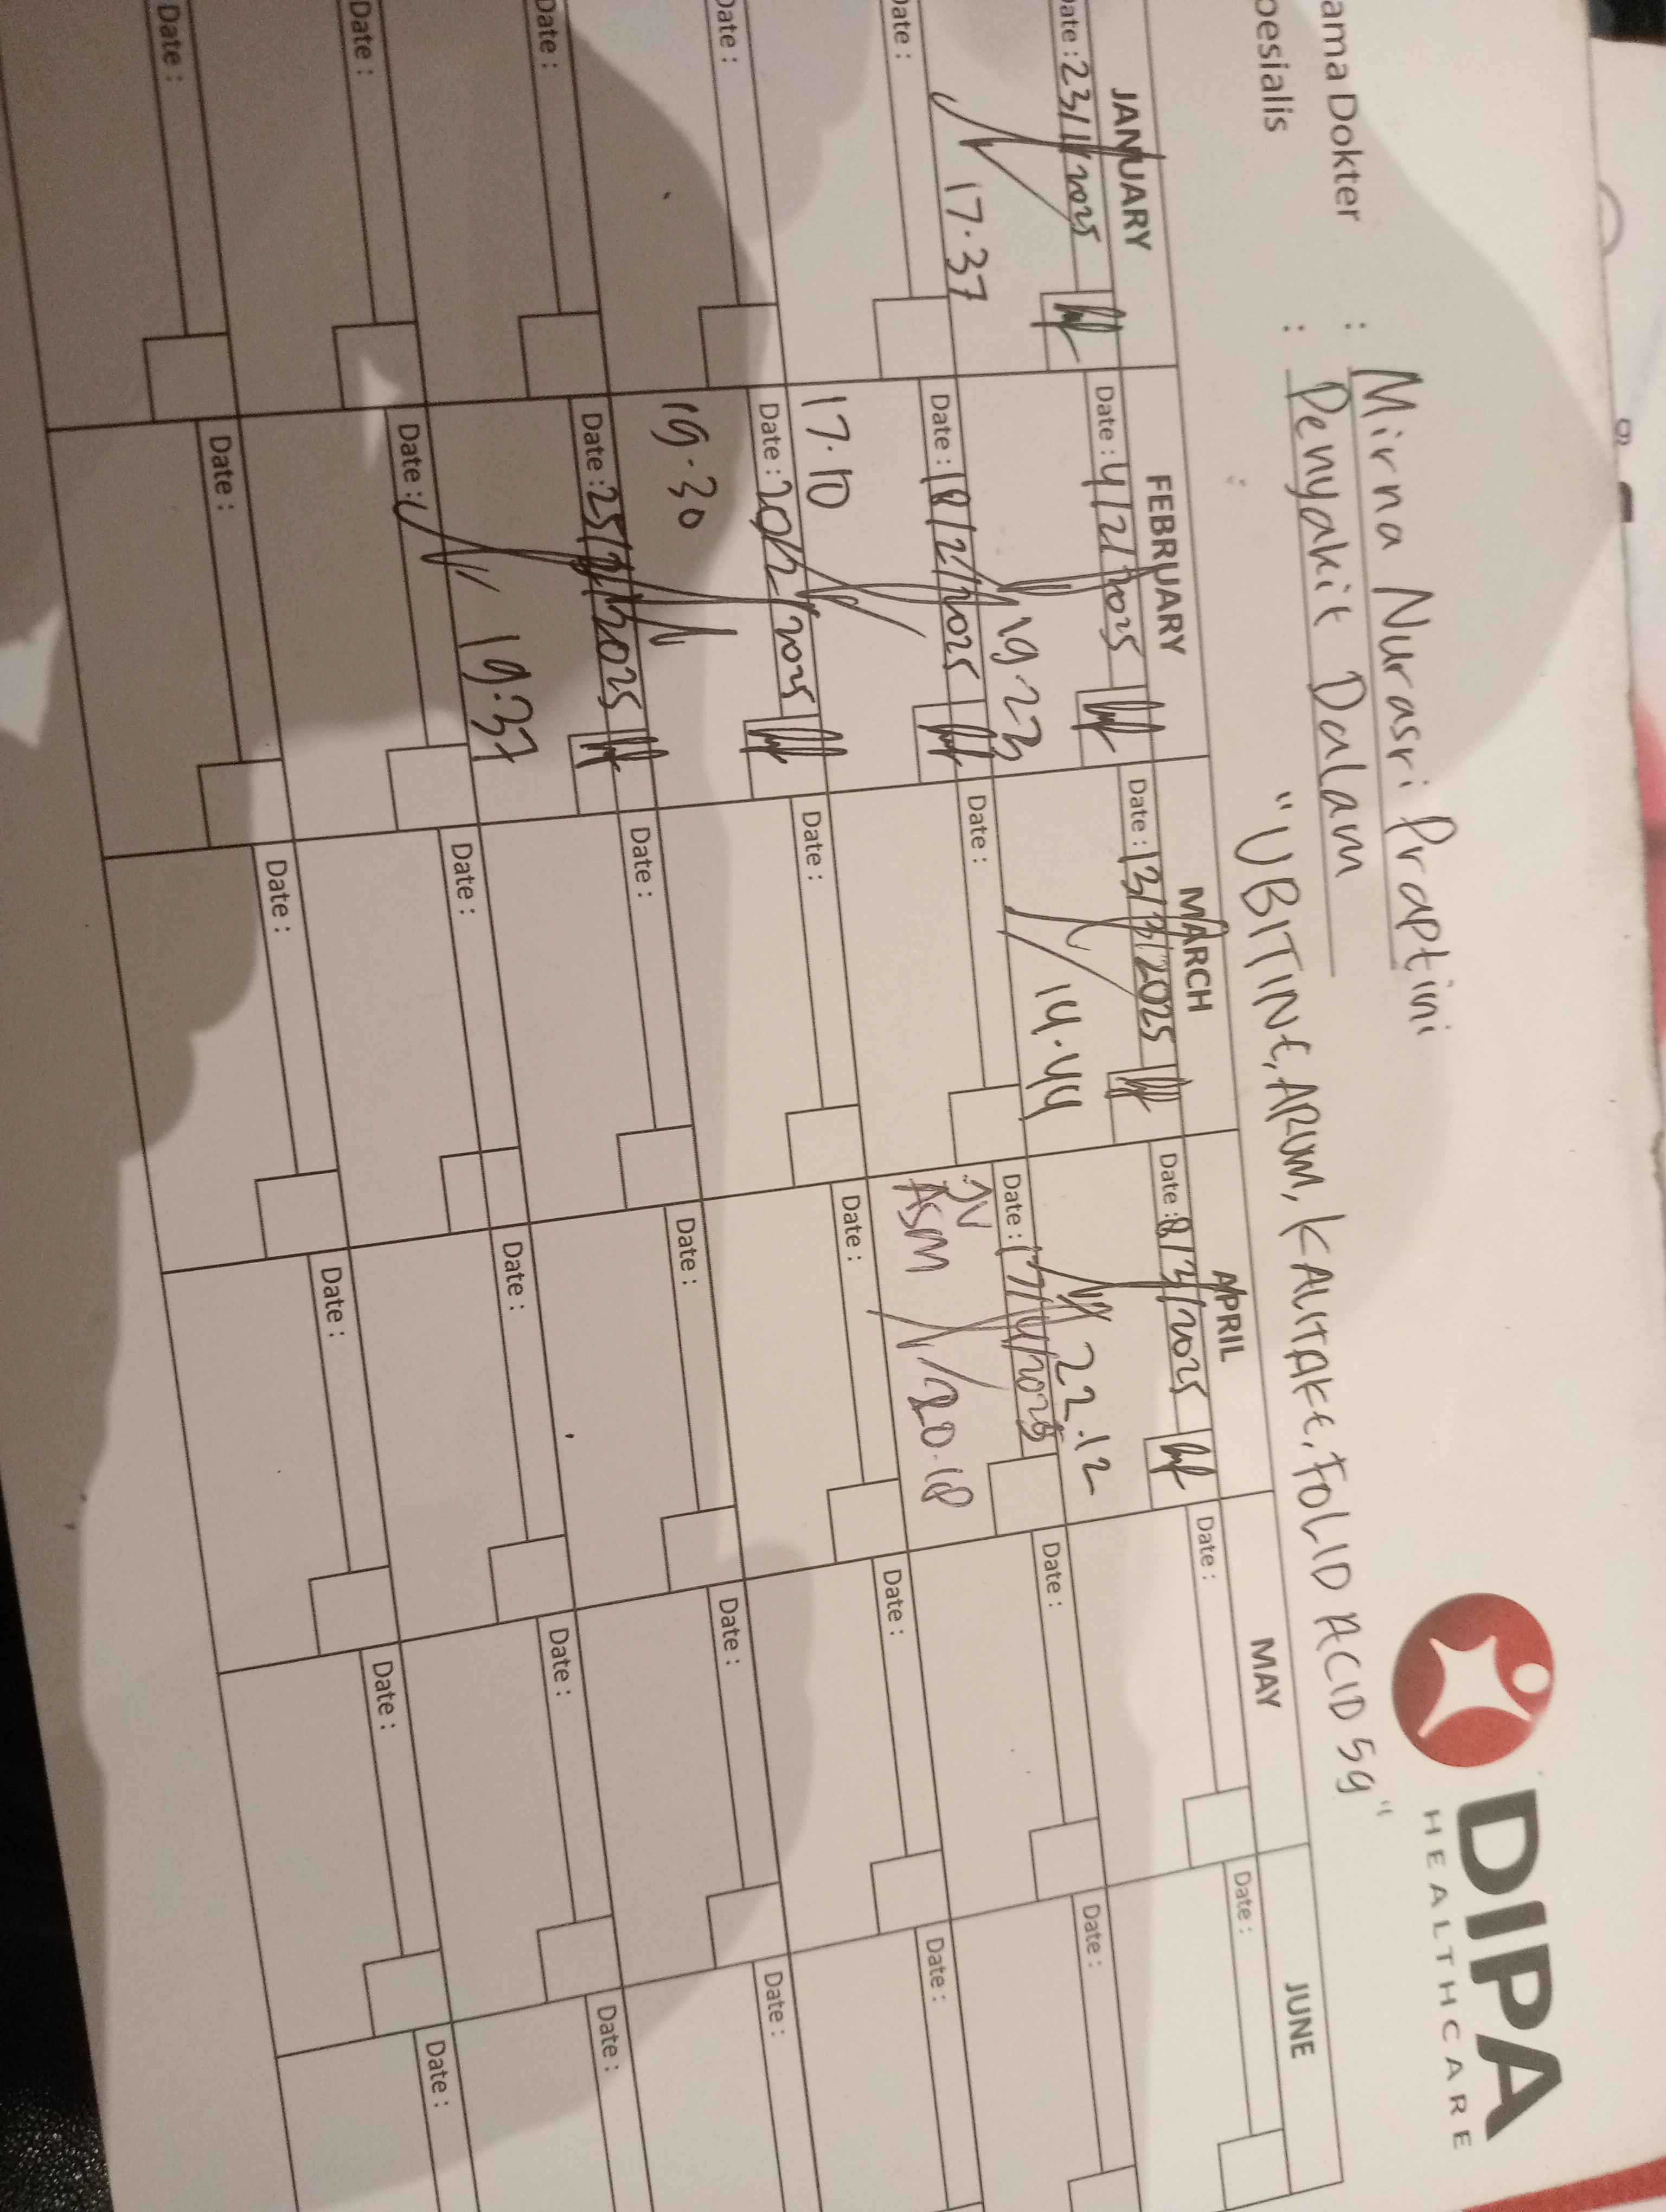 DIPA
HEALTHCARE
ama Dokter : Mirna Nurasri Praptini
pesialis : Penyakit Dalam
"UBITINE, ARUM, KALITAKE, FOLID ACID 5g"
JANUARY FEBRUARY MARCH APRIL MAY JUNE
Date : 23/1/2025 Date : 4/2/2025 Date : 13/3/2025 Date : 8/3/2025 Date : Date :
17.37 19.23 14.44 22.12
Date : Date : 18/2/2025 Date : Date : 17/4/2025 Date : Date :
17.10 ASM 20.18
Date : Date : 20/2/2025 Date : Date : Date : Date :
19.30
Date : Date : 25/2/2025 Date : Date : Date : Date :
19.37
Date : Date : Date : Date : Date : Date :
Date : Date : Date : Date : Date : Date :